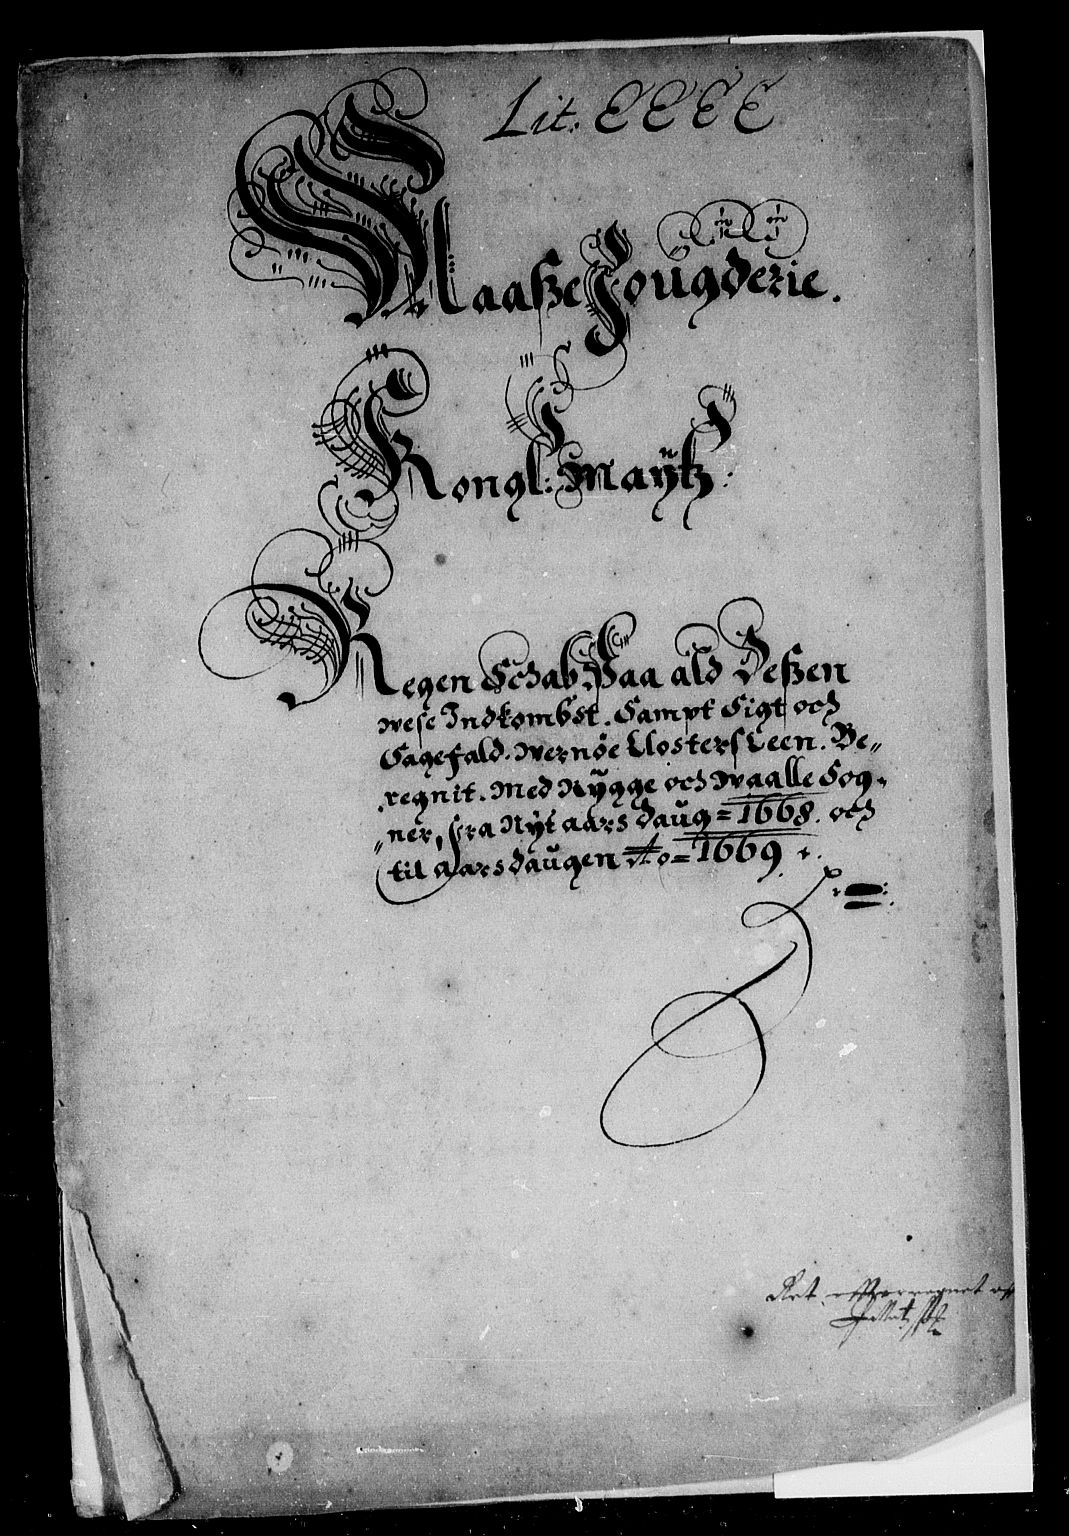 Lit. EEEE
Maaße Fougderie.
Kongl: Maÿtz:
Regen Schab Paa ald Deßen
wese Indkombst. Sampt Sigt och
Sagefald. wernöe Closters Leen. Be„
regnit. Med Rÿgge och waalle Sog„
„ner, fra Nÿt aars daug = 1668. och
til aarsdaugen Ao = 1669
Ret